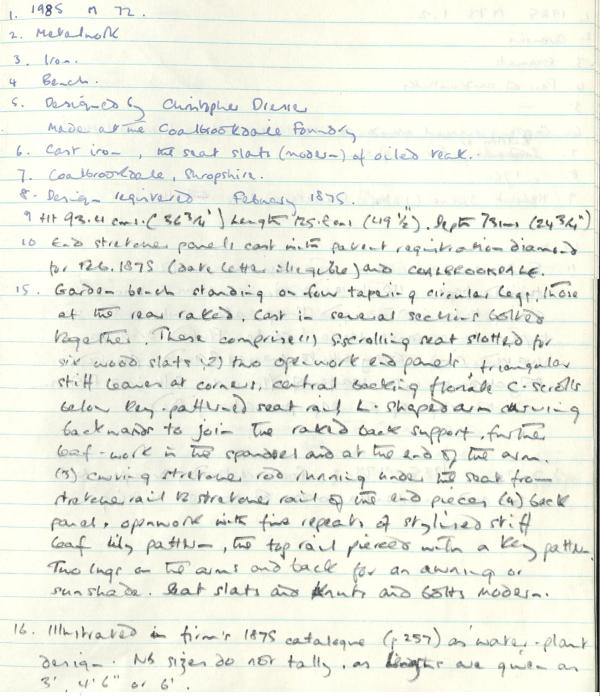 1. 1985 M 72.
2. Metalwork
3. Iron.
4 Bench.
5. Designed by Christopher Dresser
Made at the Coalbrookdale Foundry
6. Cast iron, the seat slats (modern) of oiled teak.
7. Coalbrookdale, Shropshire.
8. Design registered February 1875.
9 Ht 93.4 cms. (36 3/4") Length 125.2cms (49 1/2"). Depth (24 3/4")
10 End stretcher panels cast with patent registration diamond
for Feb. 1875 (date letter illegible) and COALBROOKDALE.
15. Garden bench standing on four tapering circular legs, those
at the rear raked. Cast in several sections bolted
together. These comprise (1) scrolling seat slotted for
six wood slats, 2) two openwork end panels, triangular
stiff leaves at corners, central backing floriate C-scrolls
below key-patterned seat rail, L-shaped arm curving
backwards to join the raked back support, further
leaf-work in the spandrel and at the end of the arm.
(3) curving stretcher rod running under the seat from
stretcher rail to stretcher rail of the end pieces (4) back
panel, openwork with five repeats of stylised stiff
leaf lily pattern, the top rail pierced with a key pattern.
Two lugs on the arms and back for an awning or
sunshade. Seat slats and nuts and bolts modern.
16. Illustrated in firm's 1875 catalogue (p 257) as 'water-plant
design. NB sizes do not tally, as lengths are given as
3', 4'6" or 6'.